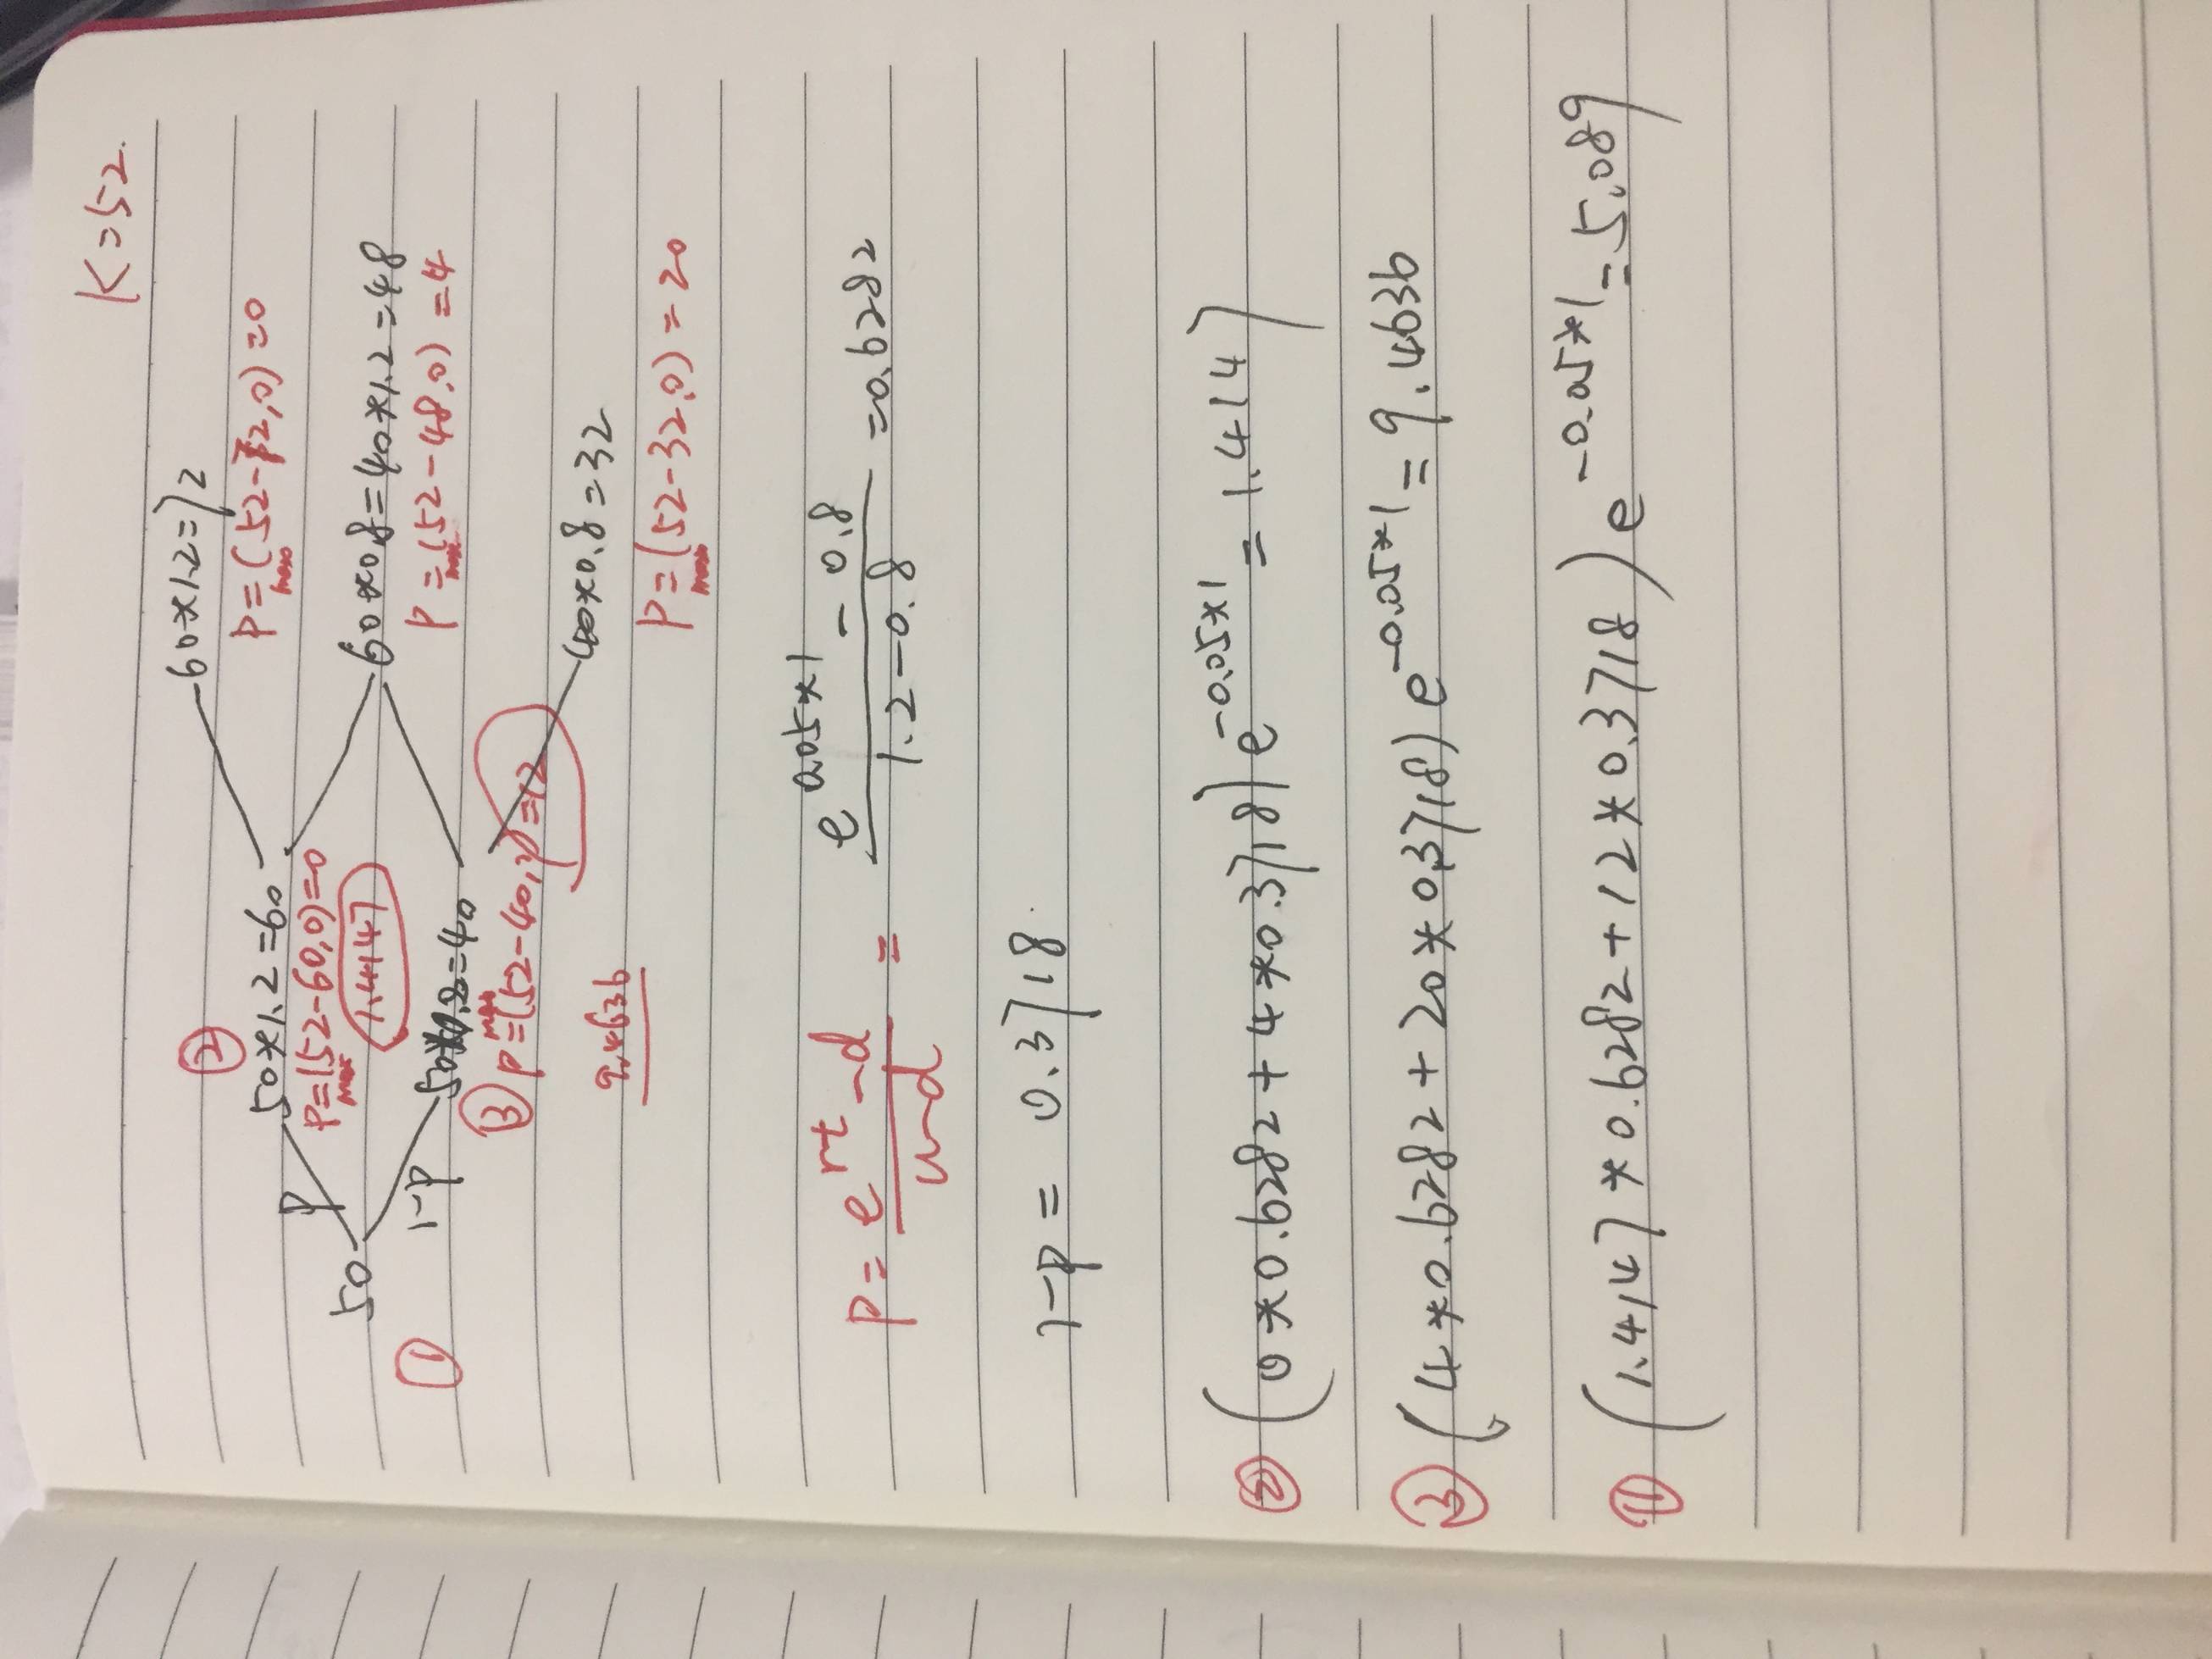 K=52
60*1.2=72
P=(52-72,0)=0
max
②
50*1.2=60
P=(52-60,0)=0
max
1.4147
60*0.8=40*1.2=48
P=(52-48,0)=4
max
P
50
1-P
①
50*0.8=40
③ P=(52-40,0)=12
max
9.4636
40*0.8=32
P=(52-32,0)=20
max
P= e^rt -d / u-d = e^0.05*1 - 0.8 / 1.2-0.8 =0.6282
1-P= 0.3718
② (0*0.6282+4*0.3718)e^-0.05*1 = 1.4147
③ (4*0.6282+20*0.3718)e^-0.05*1 = 9.4636
① (1.4147*0.6282+12*0.3718)e^-0.05*1 =5.089